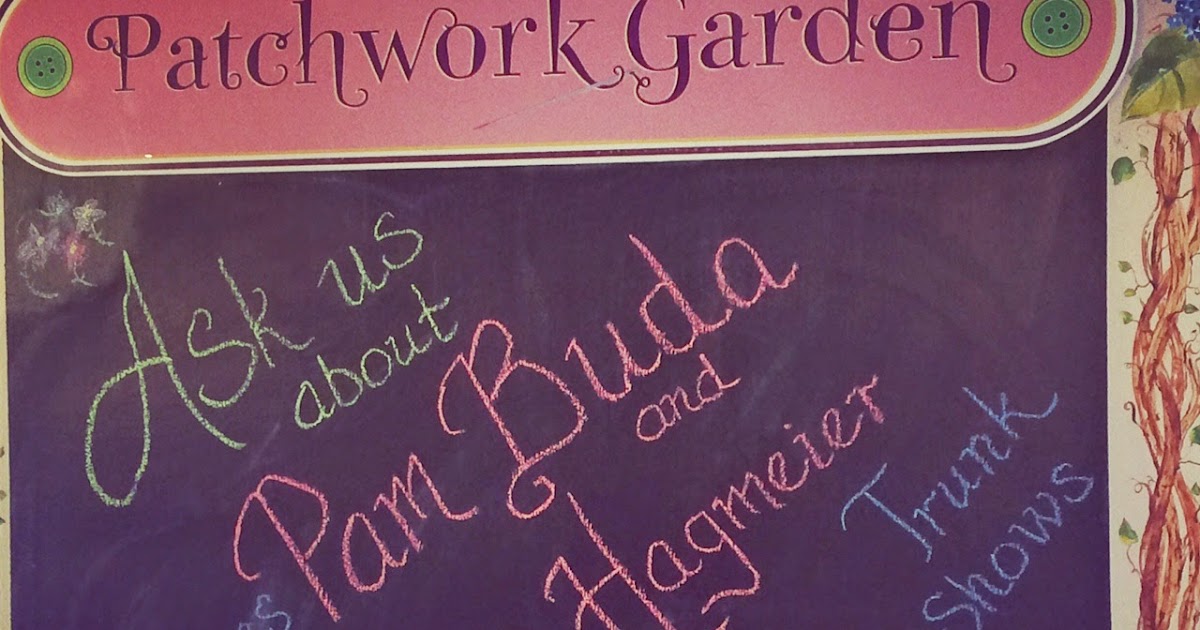 Patchwork Garden
Ask us
about
Pam Buda
and
Hagmeier
Trunk
Shows